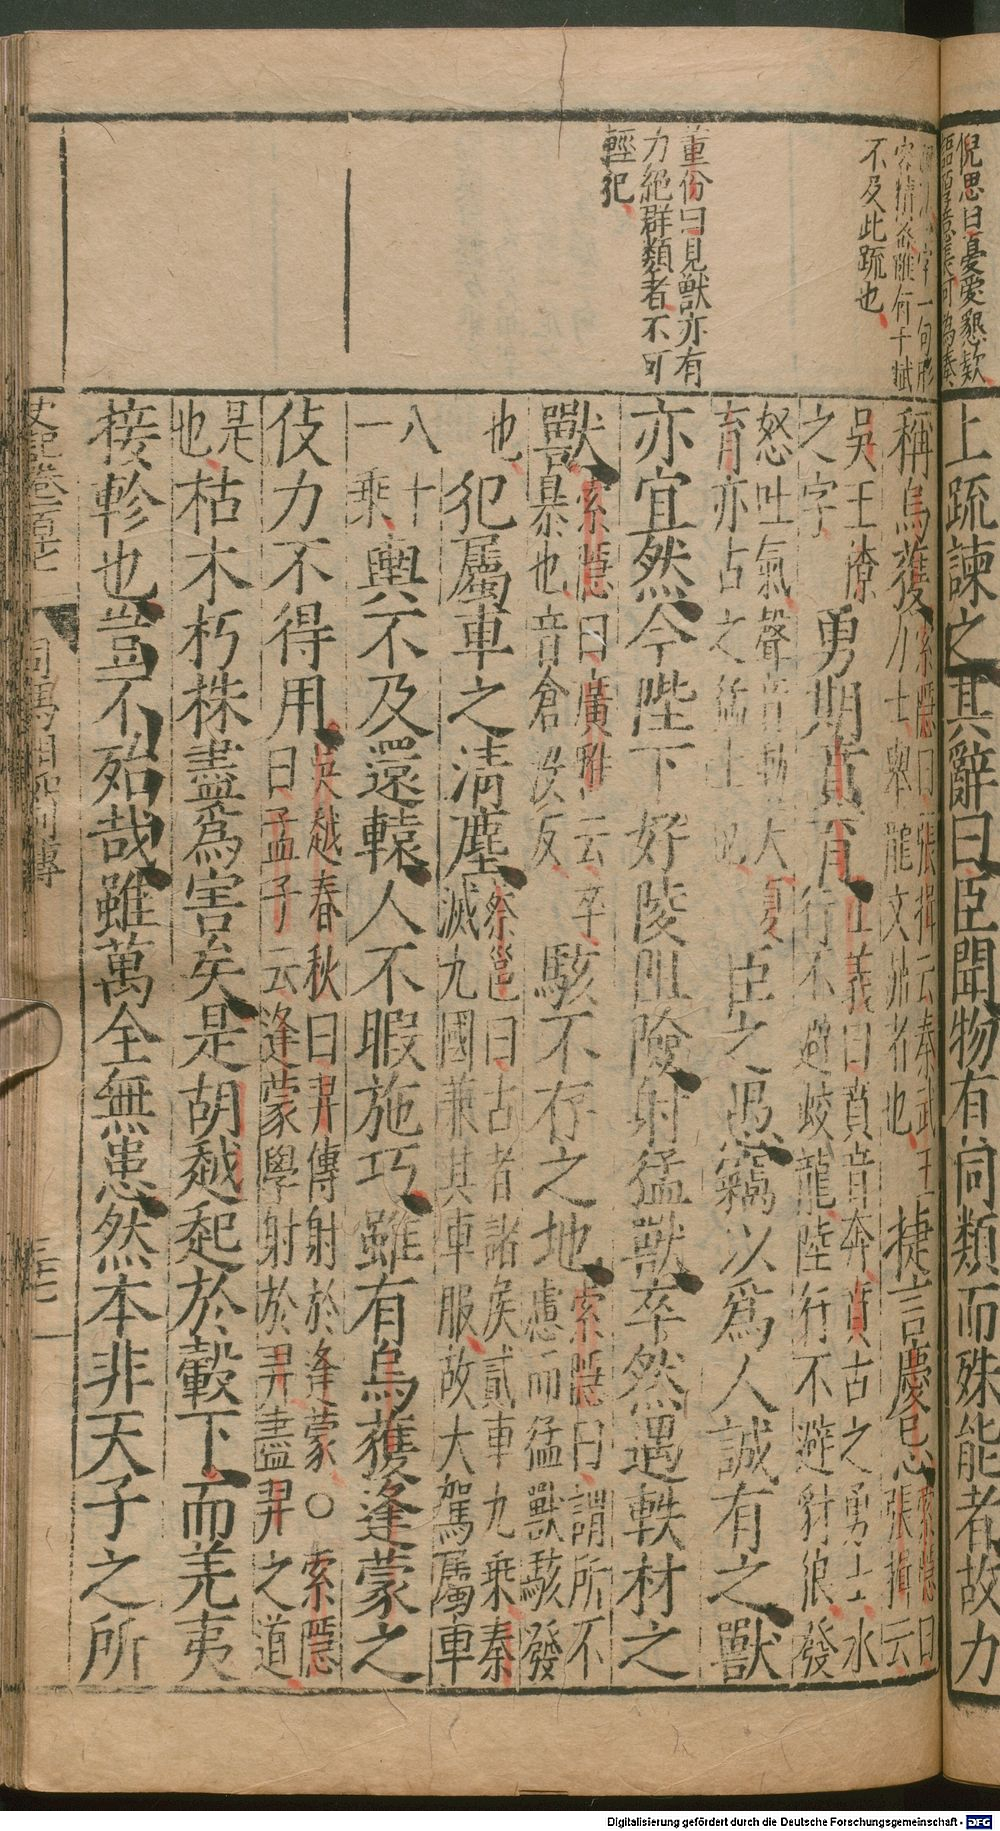 倪思曰憂愛懇款
上疏諫之其辭曰臣聞物有同類而殊能者故力
字一句形
容精
不及此疏也
稱烏獲
索隱曰張揖云秦武王
力士舉龍文鼎者也
捷言慶忌
索隱曰
張揖云
吳王僚
之字
勇期賁育
正義曰賁音奔賁古之勇士水
行不避蛟龍陸行不避豺狼發
怒吐氣聲音動天夏
育亦古之猛士也
臣之愚竊以爲人誠有之獸
董份曰見獸亦有
力絕群類者不可
輕犯
亦宜然今陛下好陵阻險射猛獸卒然遇軼材之
獸
索隱曰廣雅云卒
暴也音倉沒反
駭不存之地
索隱曰謂所不
慮而猛獸駭發
也
犯屬車之清塵
蔡邕曰古者諸侯貳車九乗秦
滅九國兼其車服故大駕屬車
八十
一乗
輿不及還轅人不暇施巧雖有烏獲逢蒙之
伎力不得用
吳越春秋曰羿傳射於逢蒙○索隱
曰孟子云逢蒙學射於羿盡羿之道
是
也
枯木朽株盡爲害矣是胡越起於轂下而羌夷
接軫也豈不殆哉雖萬全無患然本非天子之所
史記卷一百一十七
司馬相如列傳
三十七
Digitalisierung gefördert durch die Deutsche Forschungsgemeinschaft - DFG